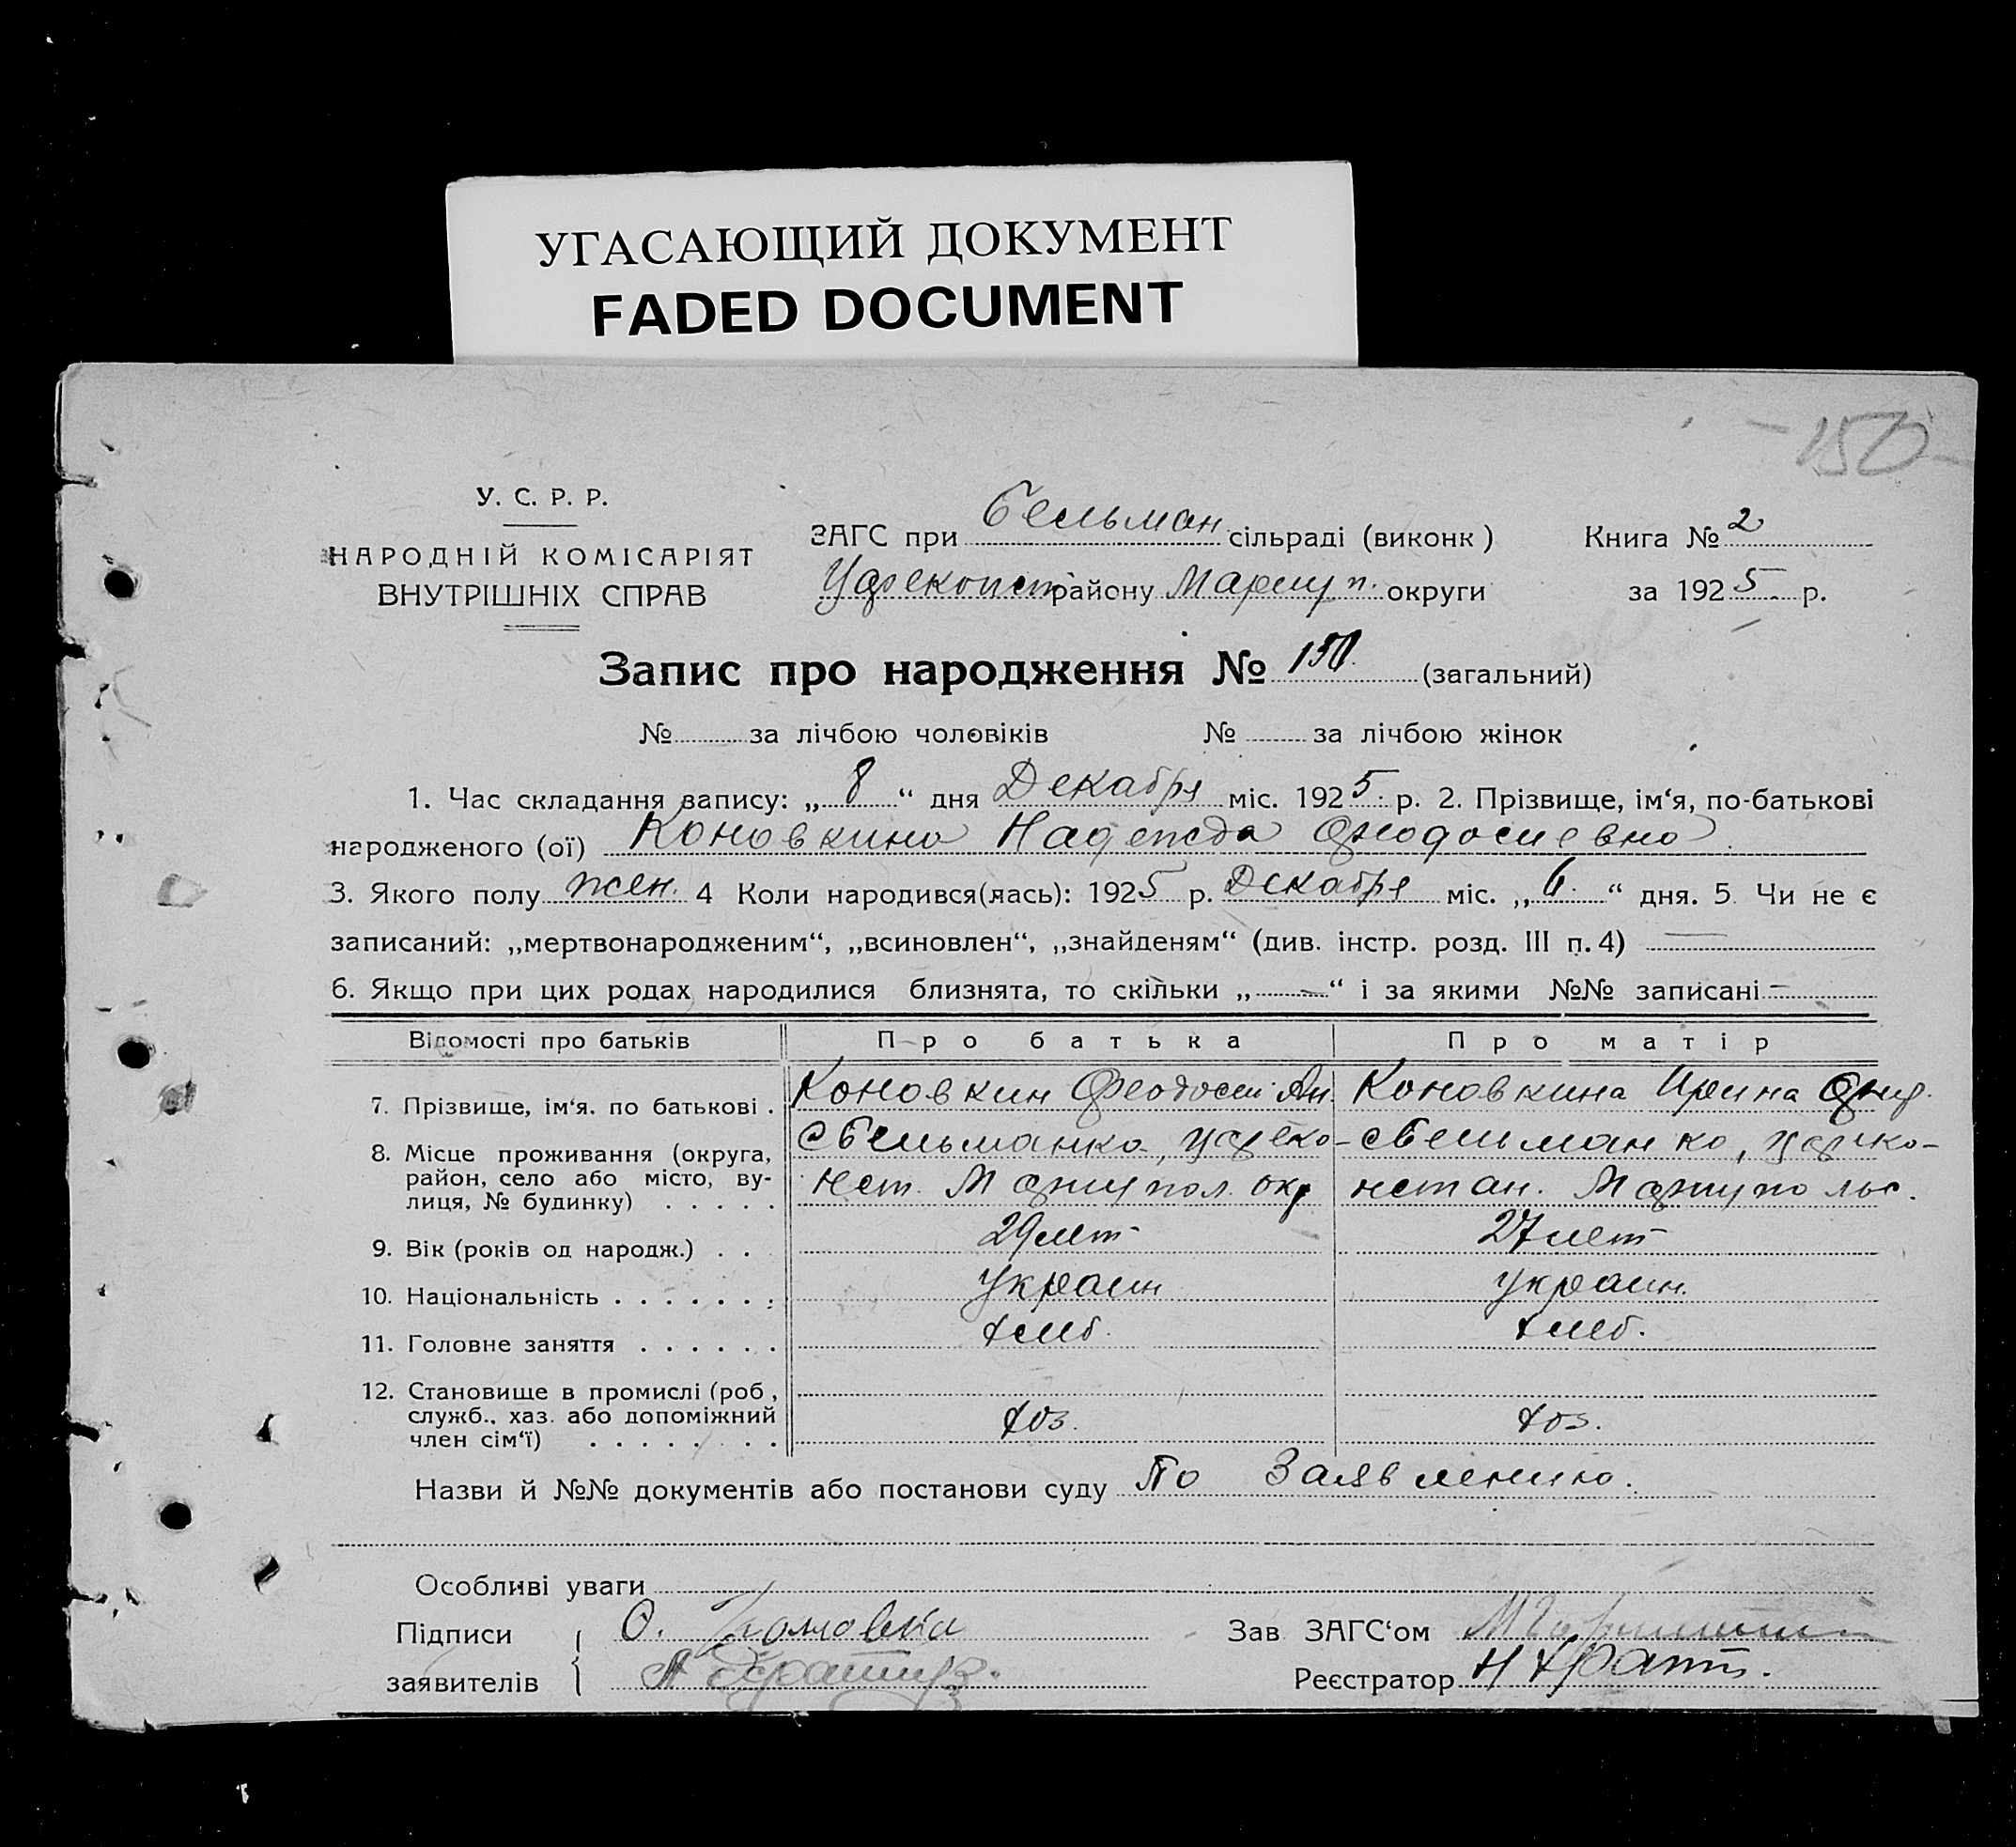 УГАСАЮЩИЙ ДОКУМЕНТ
FADED DOCUMENT
150
У. С. Р. Р.
НАРОДНІЙ КОМІСАРІЯТ
ВНУТРІШНІХ СПРАВ
ЗАГС при Бельман. сільраді (виконк)
району Мариуп. округи
Книга № 2
за 1925 р.
Запис про народження № 150. (загальний)
№ за лічбою чоловіків № за лічбою жінок
1. Час складання запису: „8“ дня Декабря міс. 1925 р. 2. Прізвище, ім‘я, по-батькові
народженого (ої) Коновкина Надежда Феодосиевна
3. Якого полу жен. 4 Коли народився(лась): 1925 р. Декабря міс. „6.“ дня. 5. Чи не є
записаний: „мертвонародженим“, „всиновлен“, „знайденям“ (див. інстр. розд. III п. 4) —
6. Якщо при цих родах народилися близнята, то скільки „—“ і за якими №№ записані —
Відомості про батьків Про батька Про матір
7. Прізвище, ім‘я. по батькові . Коновкин Феодосий Ан. Коновкина Ирина
8. Місце проживання (округа,
район, село або місто, ву-
лиця, № будинку) . . . . .
9. Вік (років од народж.) . . 29 лет 27 лет
10. Національність . . . . . . . Украин украин.
11. Головне заняття . . . . . . хлеб. хлеб.
12. Становище в промислі (роб.,
служб., хаз. або допоміжний
член сім‘ї) . . . . . . . хоз. хоз.
Назви й №№ документів або постанови суду По Заявлению.
Особливі уваги
Підписи
заявителів
Зав ЗАГС‘ом
Реєстратор